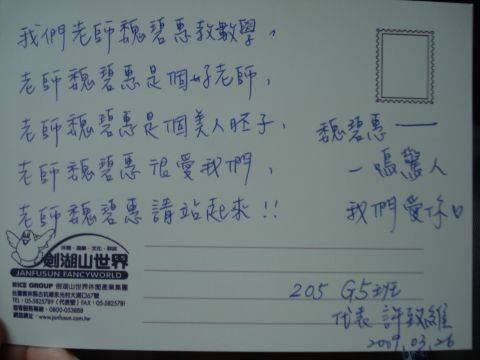 我們老師魏碧惠教數學,
老師魏碧惠是個好老師,
老師魏碧惠是個美人胚子,
老師魏碧惠很愛我們,
老師魏碧惠請站起來!!
魏碧惠——
一鳴驚人
我們愛你
劍湖山世界
JANFUSUN FANCYWORLD
RICE GROUP 劍湖山世界休閒產業集團
台灣雲林縣古坑鄉永光村大湖口67號
TEL:05-5825789
FAX:05-5825781
0800-053888
www.janfusun.com.tw
205 G5班
代表 許致維
2009.03.26